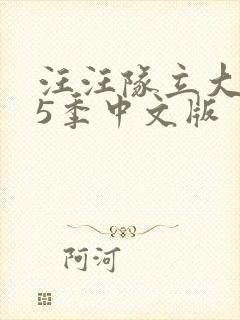 汪汪队立大
5季中文版
阿河